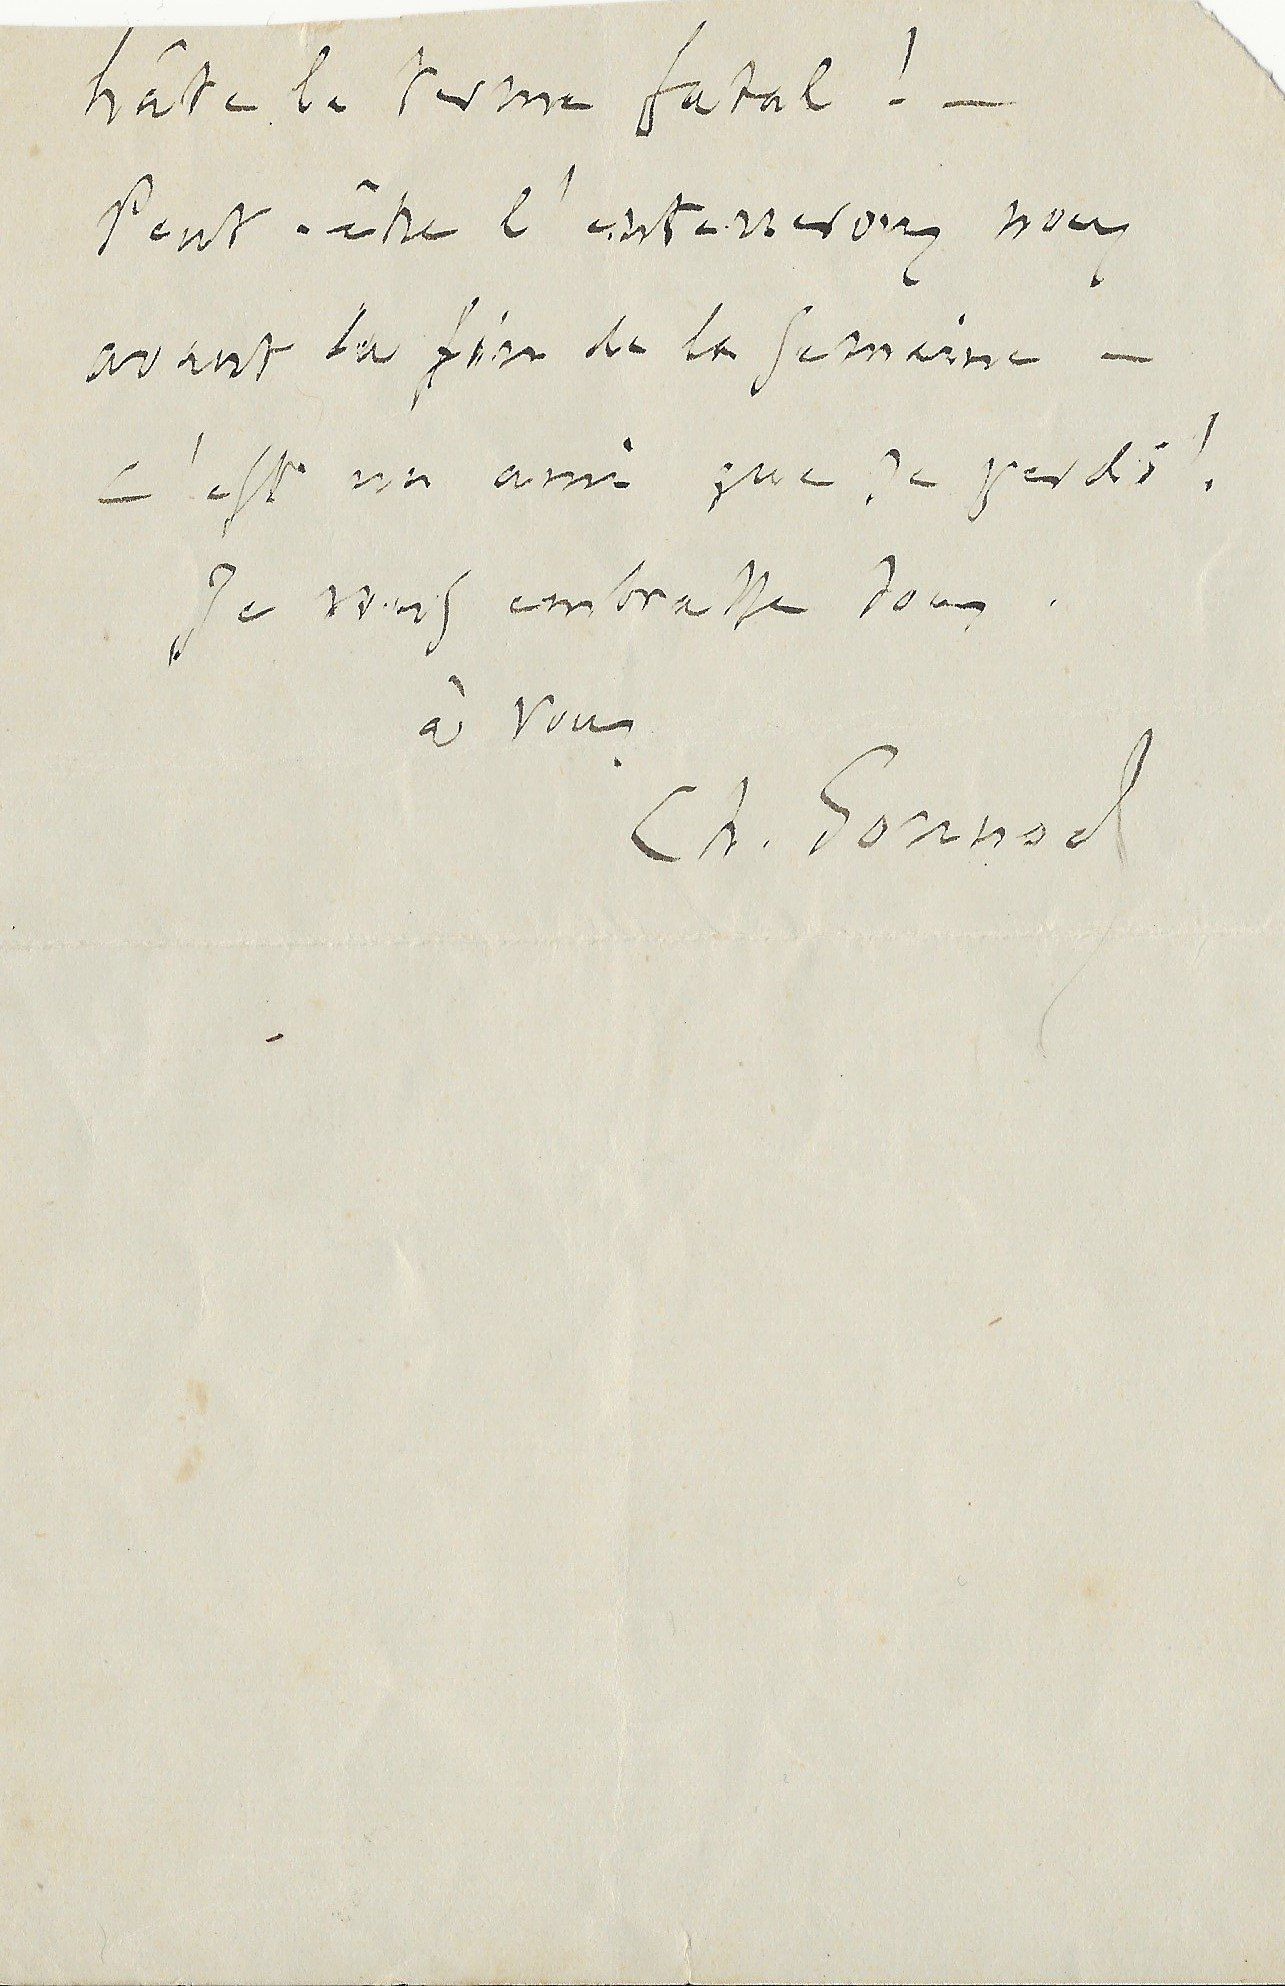 hâte le terme fatal ! —
Peut-être l'enterrerons nous
avant la fin de la semaine —
c'est un ami que je perds !
Je vous embrasse tous.
à vous
Ch. Gounod